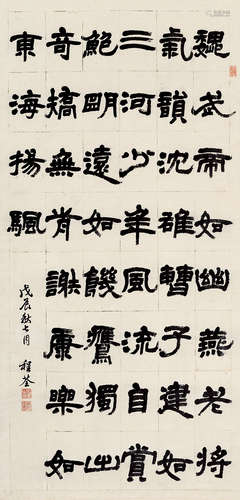 魏武帝如幽燕老將
氣韻沈雄曹子建如
三河少年風流自賞
鮑明遠如饑鷹獨出
奇矯無前謝康樂如
東海揚颿
戊辰秋七月 程荃